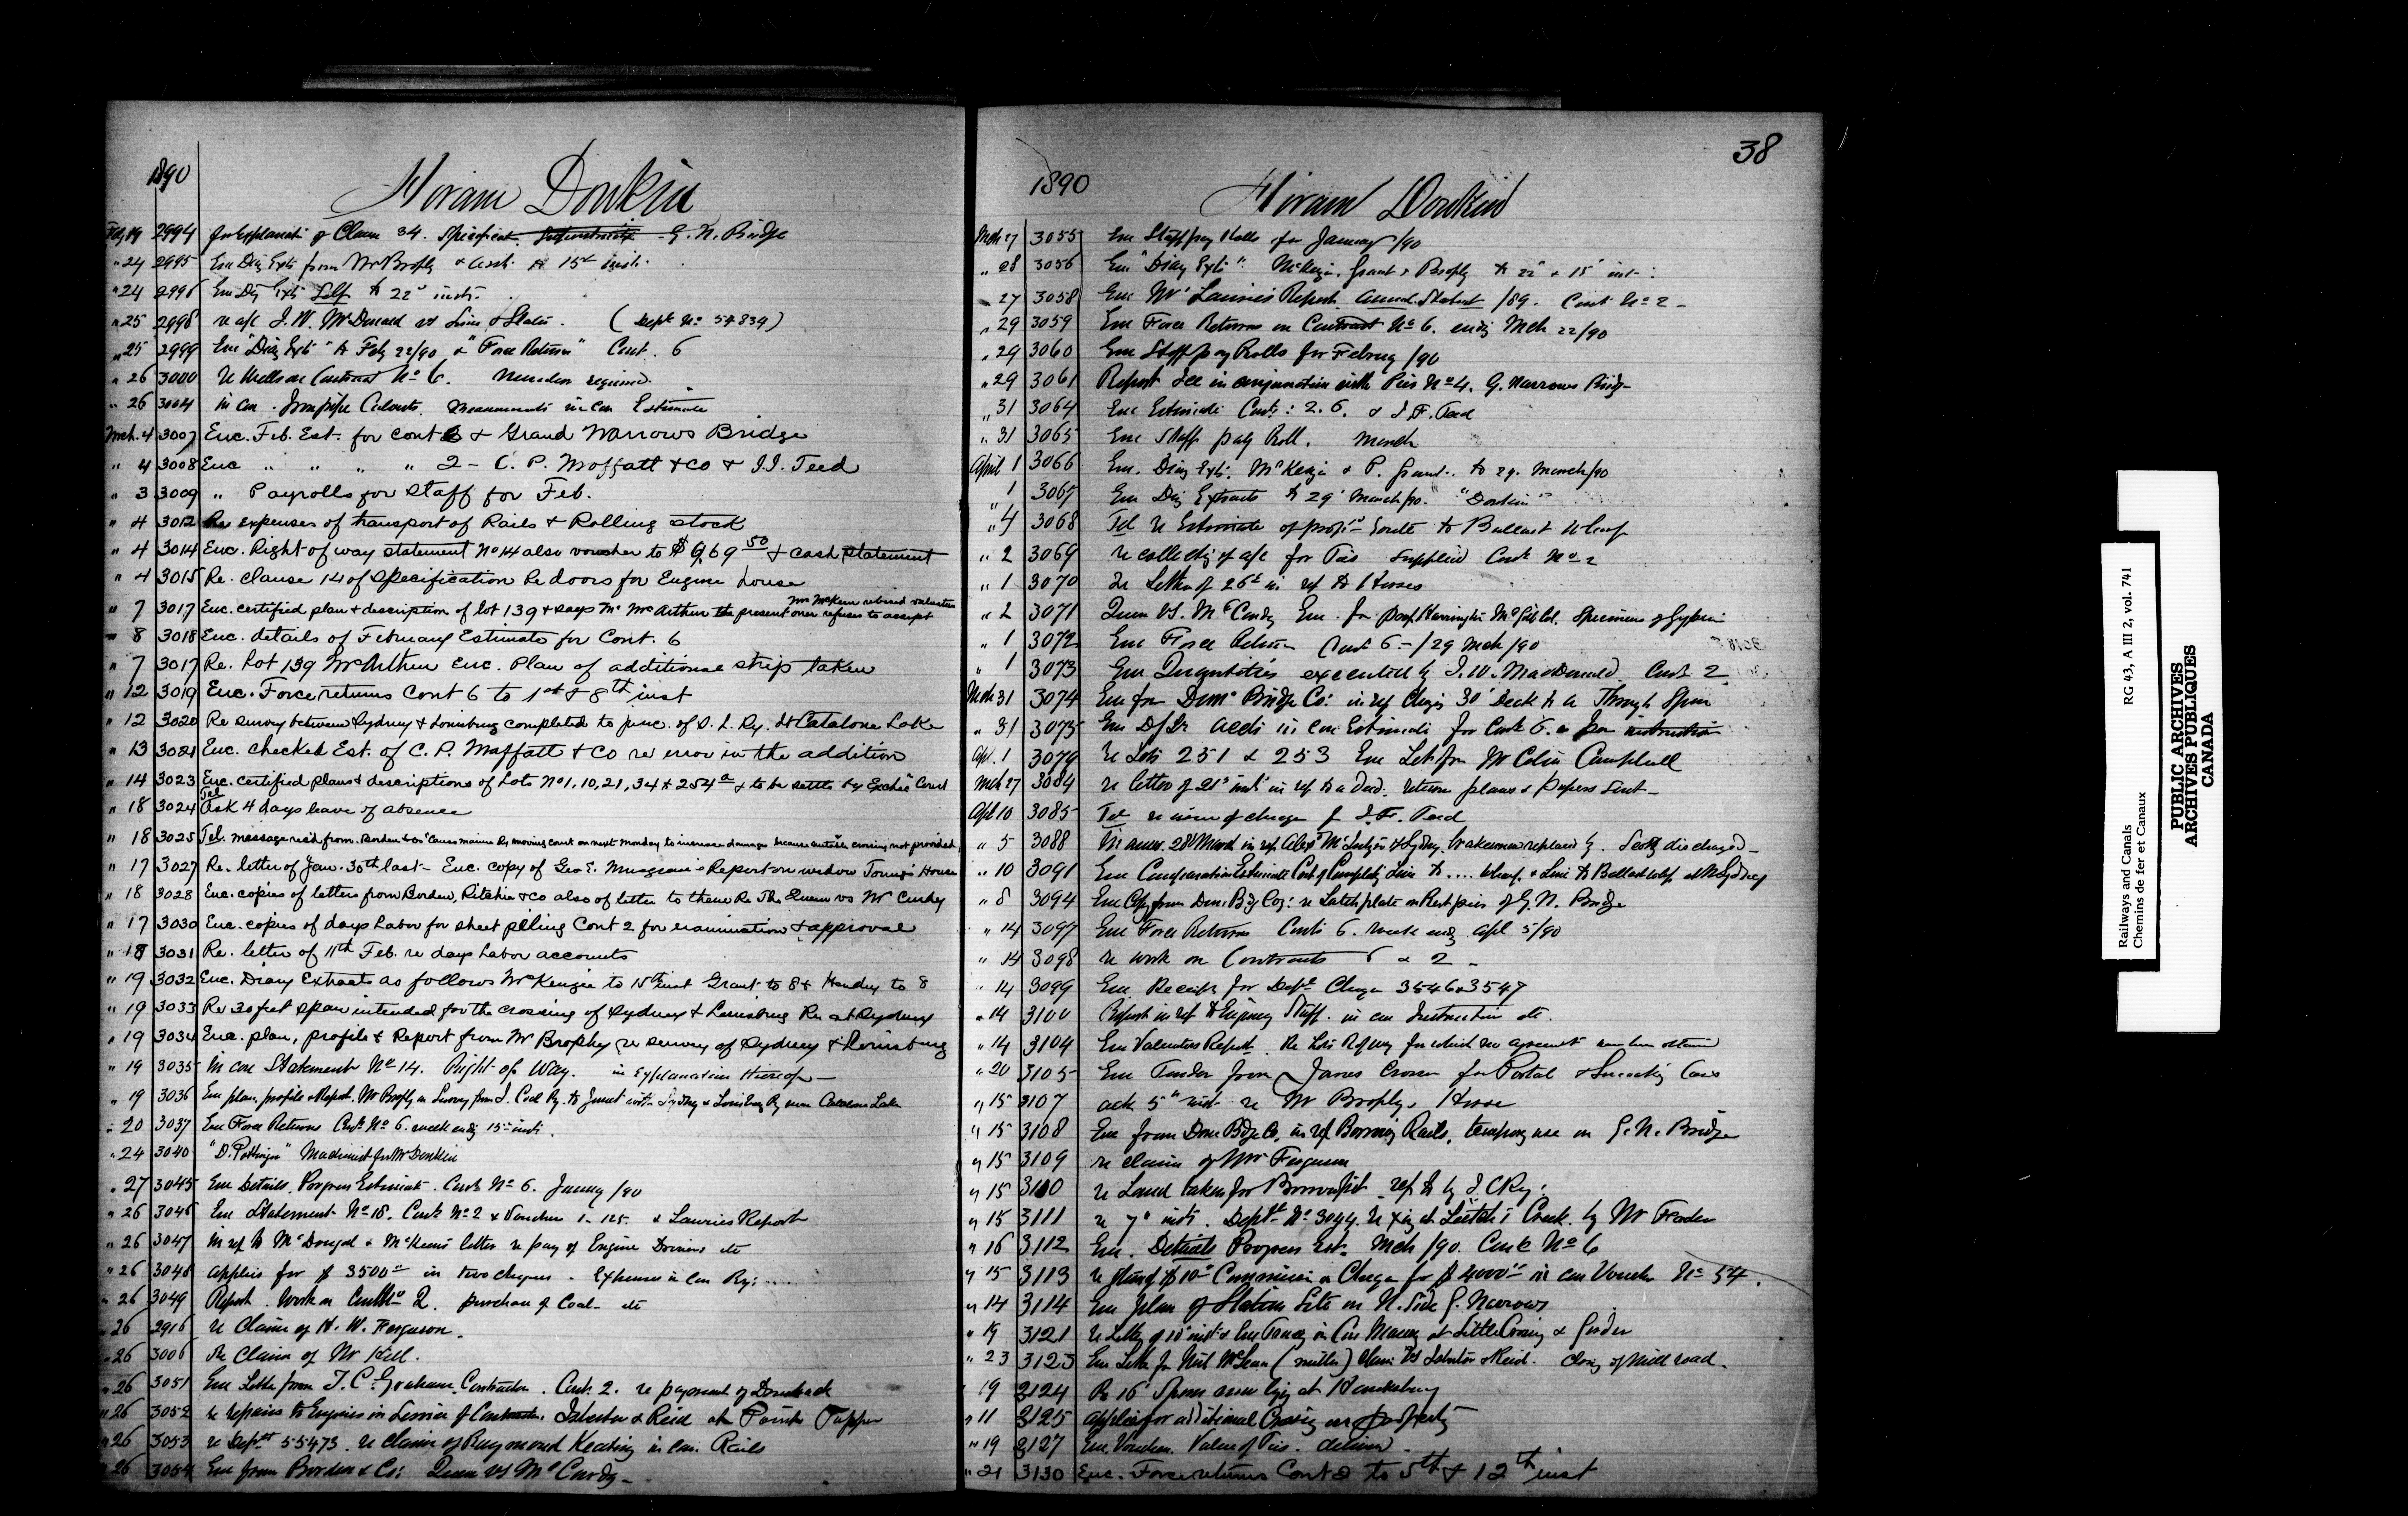 1890
Hiram Donkin
Feby 19 2994 for Explanati of Clause 34. Specificat. G. N. Bridge
" 24 2995 Enc Diary Exts from Mr Brophy & Asst. to 15th inst.
" 24 2996 Enc Diy Exts Self to 22d inst.
" 25 2998 re a/c J. W. McDonald vs Sims & Slater. (Dept No 57839)
" 25 2999 Enc "Diary Exts" to Feby 22/90 & "Force Return" Cont. 6
" 26 3000 re Wells on Contract No 6. required.
" 26 3004 in con. Iron pipe Culverts. Measurements in con Estimate
Mch. 4 3007 Enc. Feb. Est. for cont 6 & Grand Narrows Bridge
" 4 3008 Enc " " " " 2 - C. P. Moffatt & Co & J.J. Teed
" 3 3009 " Payrolls for Staff for Feb.
" 4 3012 Re expenses of transport of Rails & Rolling stock
" 4 3014 Enc. Right of way statement No 14 also voucher to $969 50 & cash statement
" 4 3015 Re. clause 14 of specification Re doors for Engine house
" 7 3017 Enc. certified plan & description of lot 139 & says Mr McArthur the present owner refuses to accept Mr McKeen revised valuation
" 8 3018 Enc. details of February Estimate for Cont. 6
" 7 3017 Re. Lot 139 McArthur Enc. Plan of additional strip taken
" 12 3019 Enc. Force returns Cont 6 to 1st & 8th inst
" 12 3020 Re survey between Sydney & Louisburg completed to junc. of S. L. Ry. at Catalone Lake
" 13 3021 Enc. checked Est. of C. P. Moffatt & Co re error in the addition
" 14 3023 Enc. certified plans & descriptions of Lots No 1, 10, 21, 34 & 254a & to be settled by Excheqr Court
" 18 3024 Tel Ask 4 days leave of absence
" 18 3025 Tel. message rec'd from Borden & Co moving court on next Monday to increase damages because crossing not provided
" 17 3027 Re. letter of Jan. 30th last - Enc. copy of Geo E. Musgrave's Report on widow Young's House
" 18 3028 Enc. copies of letters from Borden, Ritchie & Co also of letter to them Re The Queen vs McCurdy
" 17 3030 Enc. copies of days Labor for sheet pilling Cont 2 for examination & approval
" 18 3031 Re. letter of 11th Feb. re days Labor accounts
" 19 3032 Enc. Diary Extracts as follows McKenzie to 15th inst Grant to 8 & Hendry to 8
" 19 3033 Re 30 feet span intended for the crossing of Sydney & Louisburg Rn at Sydney
" 19 3034 Enc. plan, profile & Report from Mr Brophy re survey of Sydney & Louisburg
" 19 3035 in con Statement No 14. Right of Way. in Explanation thereof
" 19 3036 Enc plan, profile & Report. Mr Brophy on Survey from I. Col Ry. to Junct with Sydney & Louisburg Ry near Catalone Lake
" 20 3037 Enc Force Returns Cont No 6. week endg 15th inst.
" 24 3040 "D. Pottinger" Machinist for Mr Donkin
" 27 3045 Enc Details. Progress Estimate. Cont No 6. Jany /90
" 26 3046 Enc Statement No 18. Cont No 2 & Voucher 1-125. & Lauries Report
" 26 3047 in ref to McDougal & McKeens letter re pay of Engine Drivers etc
" 26 3048 applies for $3500 00 in two cheques - Expenses in con Ry: ...
" 26 3049 Report. Work on Cont No 2. purchase of Coal - etc
" 26 2916 re Claim of H. W. Ferguson.
" 26 3006 Re Claim of Mr Hill.
" 26 3051 Enc Letter from J. C. Graham, Contractor. Cont. 2. re payment of Drawback
" 26 3052 re repairs to Engines in Service of Contractors. Isbester & Reid at Point Tupper
" 26 3053 re Dept 55473. re claim of Raymond Keating in con. Rails
" 26 3054 Enc from Borden & Co: Queen vs McCurdy -
38
1890
Hiram Donkin
Mch 27 3055 Enc Staff pay Rolls for January /90
" 28 3056 Enc "Diary Exts". McKenzie, Grant & Brophy to 22d & 15th inst:
" 27 3058 Enc Mr Lauries Report. Annual Statmt /89. Cont No 2 -
" 29 3059 Enc Force Returns on Contract No 6. endg Mch 22/90
" 29 3060 Enc Staff pay Rolls for Februy /90
" 29 3061 Report Ice in conjunction with Pier No 4. G. Narrows Bridge
" 31 3064 Enc Estimate Conts: 2. 6. & J. F. Teed
" 31 3065 Enc Staff pay Roll. March
April 1 3066 Enc. Diary Exts. McKenzie & P. Grant. to 29. March/90
" 1 3067 Enc Diy Extracts to 29th March/90. "Donkin"
" 4 3068 Tel re Estimate of propsd route to Ballast Wharf
" 2 3069 re collectig of a/c for Ties supplied Cont No 2
" 1 3070 re Letter of 26th in ref to Houses
" 2 3071 Queen vs. McCurdy Enc. for Prof. Harrington McGill Col. Specimens of Gypsum
" 1 3072 Enc Force Return Cont 6 - /29 Mch /90
" 1 3073 Enc Quantities executed by J. W. MacDonald. Cont 2
Mch 31 3074 Enc from Domn Bridge Co: in ref Chargs 30' Deck to a Through Span
" 31 3075 Enc in con Estimate for Cont 6.
Apl. 1 3079 re Lots 251 & 253 Enc Let. from Mr Colin Campbell
Mch 27 3084 re letter of 21st inst in ref to a Deed. return plans & papers Sent -
Apl 10 3085 Tel re issue of cheque for J. F. Teed
" 5 3088 In answ. 28th March in ref. Alexr of Sydney. brakeman replaced by . discharged -
" 10 3091 Enc Comparative Estimate Cost of Completg Line to .... Wharf. & Line to Ballast Whf. at N Sydney
" 8 3094 Enc Copy from Dom: Bdg Coy: re Latch plate on Rest piers of G. N. Bridge
" 14 3097 Enc Force Returns Cont 6. week endg Apl 5/90
" 14 3098 re work on Contracts 6 & 2 -
" 14 3099 Enc Receipts for Dept Cheques 3546 & 3547
" 14 3100 Report in ref to Enginery Staff. in con Instruction etc.
" 14 3104 Enc Valuators Report. Re Lots R of way for which no agreemt has been obtained
" 20 3105 Enc Tender from James Crossen for Postal & Smoking Cars
" 15 3107 ack 5th inst. re Mr Brophy's House
" 15 3108 Enc from Dom Bdge Co, in ref Borrowing Rails. temporary use on G. N. Bridge
" 15 3109 re claim of Mr Ferguson
" 15 3110 re Land taken for Borrowpit ref. to by I. C Ry:
" 15 3111 re 7th inst. Dept No 3044. re xing at Leitch's Creek. by Mr Fraser
" 16 3112 Enc. Details Progress Est. Mch /90. Cont No 6
" 15 3113 re $10 00 Commission on Cheque for $4000 00 in con Voucher No 54.
" 14 3114 Enc plan of Station Site on N. Side G. Narrows
" 19 3121
" 23 3123 Enc Letter fr Neil McLean (miller) Claim vs Isbester & Reid. Closg of Mill road.
19 3124 Re 16' Spans now lying at Hawkesbury
" 11 3125 applies for additional Crossing on property
" 19 3127 Enc Voucher. Value of Ties. delivered.
" 21 3130 Enc. Force returns Cont 2 to 5th & 12th inst
Railways and Canals
Chemins de fer et Canaux
RG 43, A III 2, vol. 741
PUBLIC ARCHIVES
ARCHIVES PUBLIQUES
CANADA